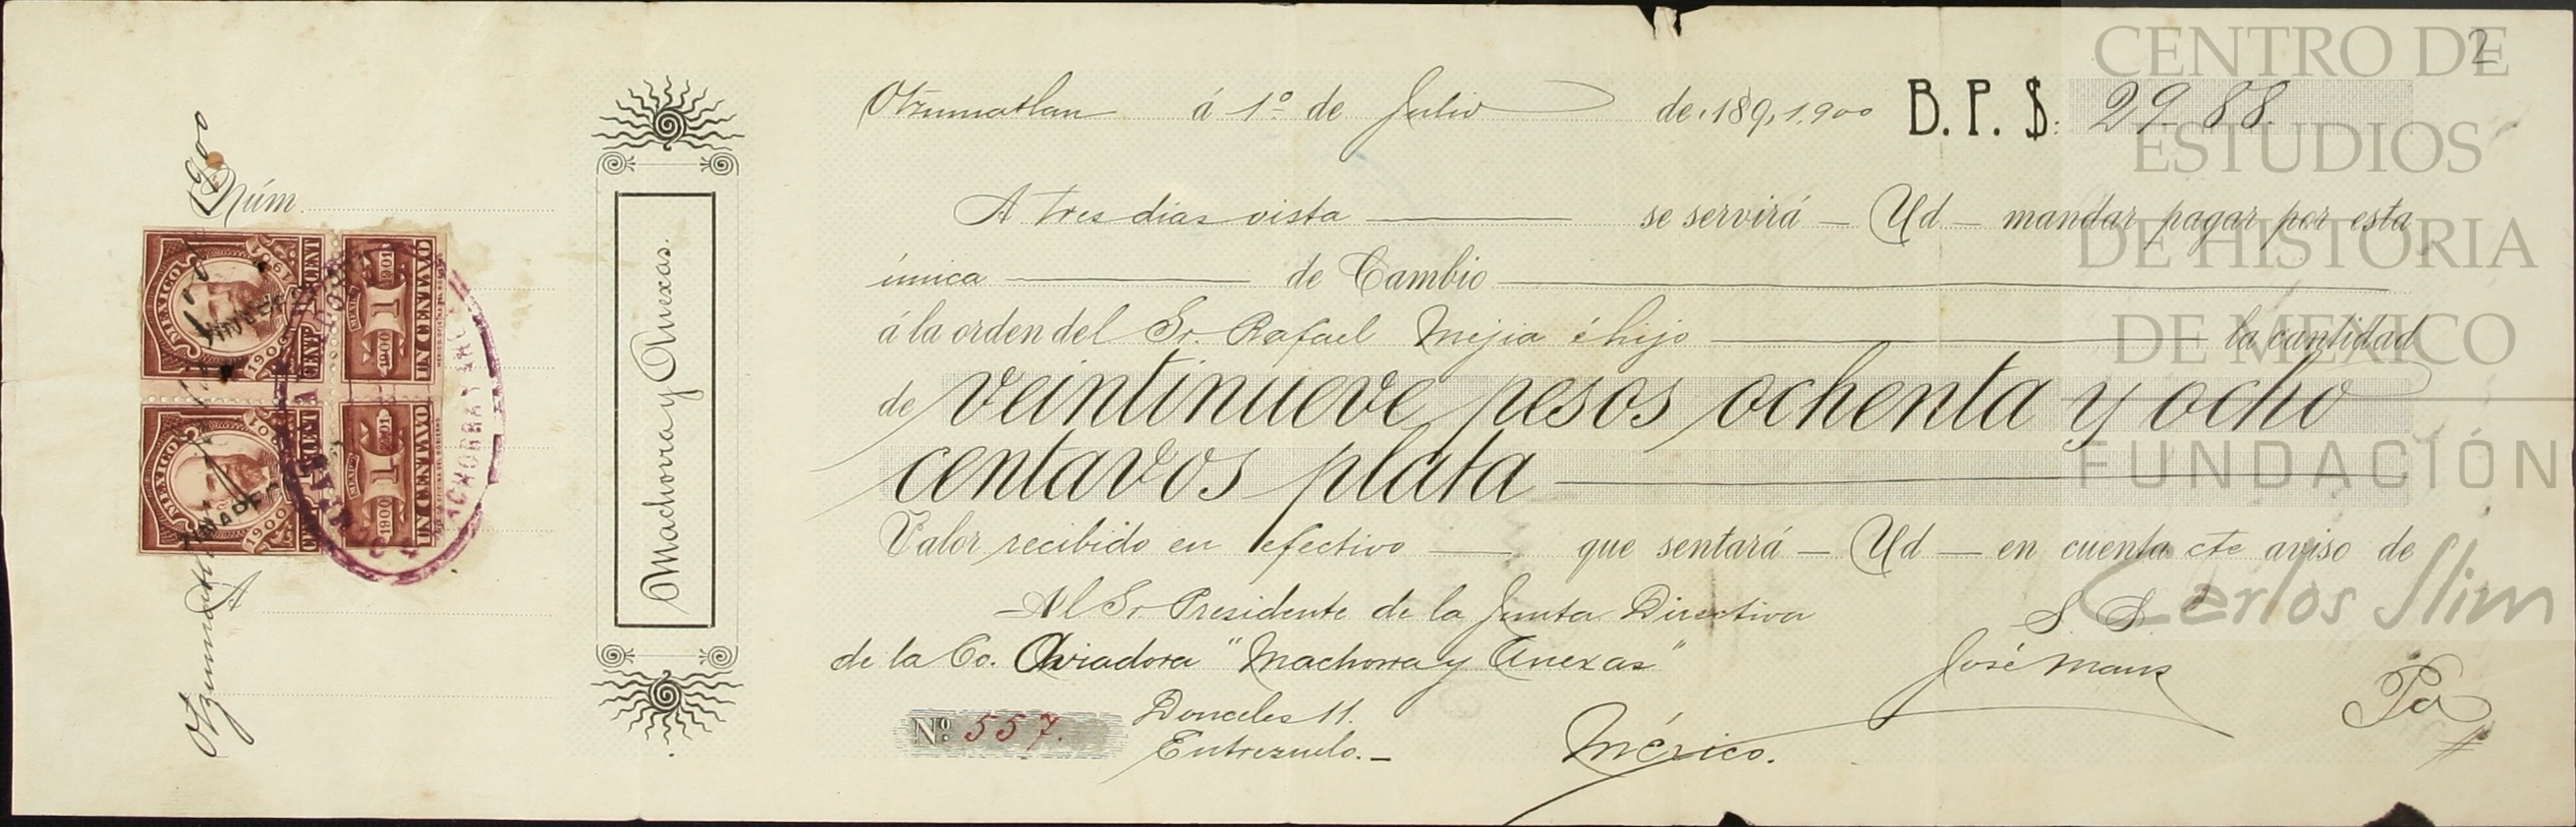 2
CENTRO DE
ESTUDIOS
DE HISTORIA
DE MEXICO
FUNDACIÓN
Carlos Slim
Otzumatlan á 1º de Julio de 189, 1,900 B. P. $: 29.88.
A tres dias vista se servirá Ud mandar pagar por esta
única de Cambio
á la orden del Sr. Rafael Mejia é hijo la cantidad
de veintinueve pesos ochenta y ocho
centavos plata
Valor recibido en efectivo que sentará Ud en cuenta cte aviso de
Al Sr. Presidente de la Junta Directiva S. S.
de la Co. Aviadora "Machorra y Anexas" José
Nº 557. Donceles 11.
Entresuelo. México.
Machorra y Anexas.
Núm.
A
1900
MEXICO
1900
1901
UN CENTAVO
1
MEXICO
1900
1901
UN CENTAVO
1